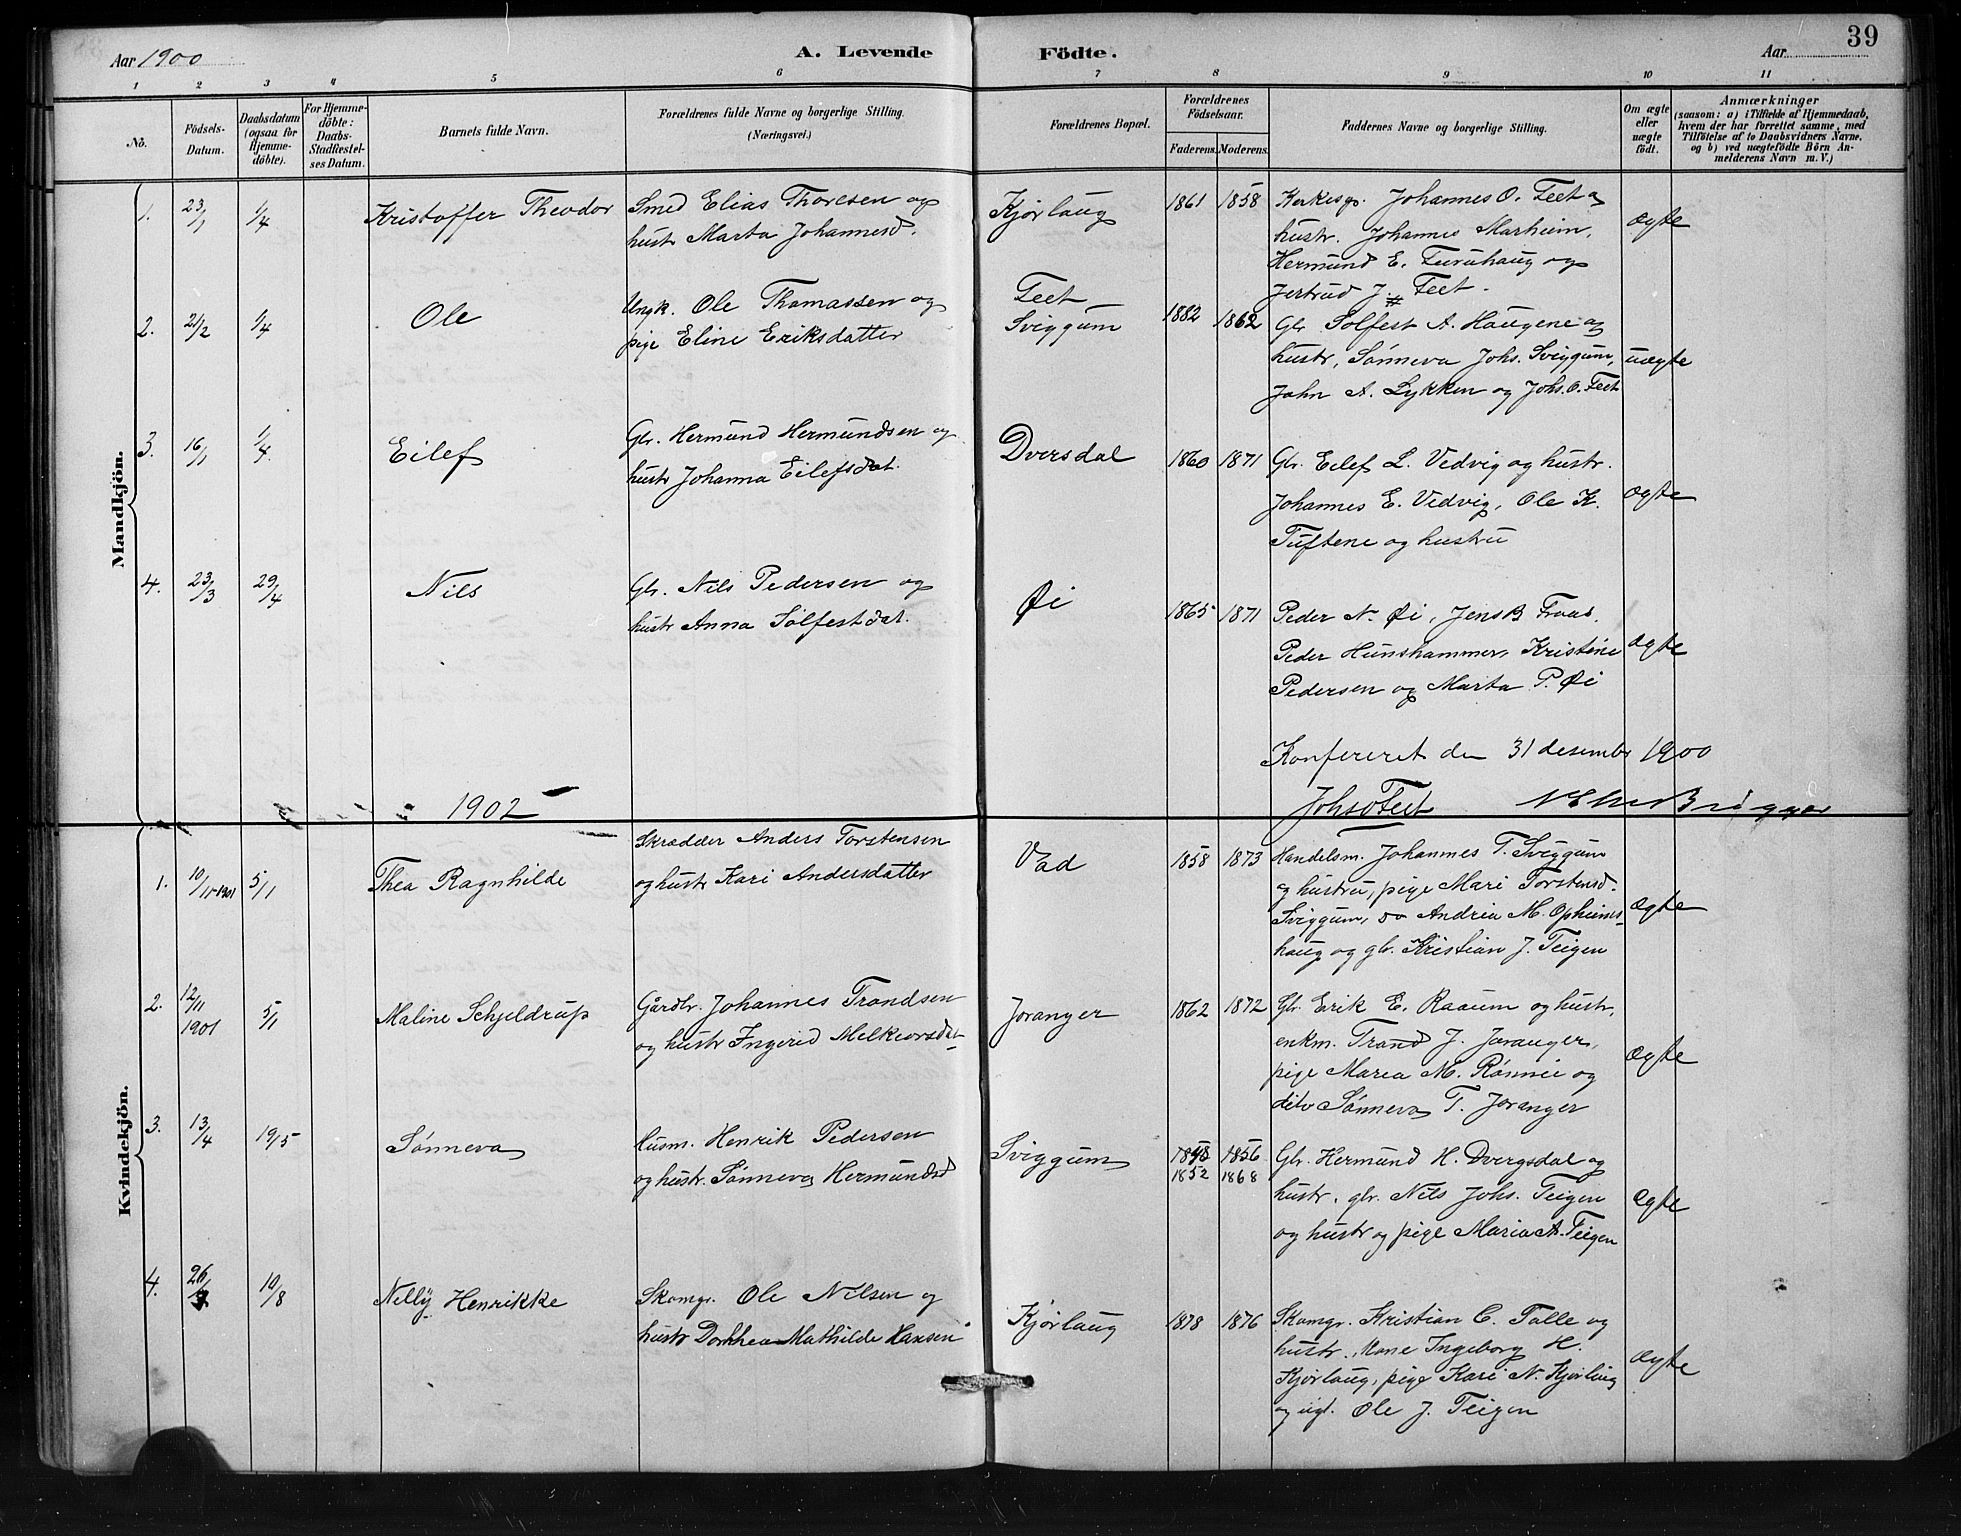 Aar 1900
A. Levende
Födte.
Aar
39
1 2 3 4 5 6 7 8 9 10 11
No.
Födsels-
Datum.
Daabsdatum
(ogsaa for
Hjemme-
döbte).
For Hjemme-
döbte:
Daabs-
Stadfæstel-
ses Datum.
Barnets fulde Navn.
Forældrenes fulde Navne og borgerlige Stilling.
(Næringsvei.)
Forældrenes Bopæl.
Forældrenes
Födselsaar.
Faderens.
Moderens.
Faddernes Navne og borgerlige Stilling.
Om ægte
eller
uægte
födt.
Anmærkninger
(saasom: a) i Tilfælde af Hjemmedaab,
hvem der har forrettet samme, med
Tilföielse af to Daabsvidners Navne,
og b) ved uægtefödte Börn An-
melderens Navn m. V.)
Mandkjön.
1. 23/1 1/4 Kristoffer Theodor
Smed Elias Thoresen og
hustr Marta Johannesd.
Kjørlaug 1861 1858
Kirkesgr. Johannes O. Feet og
hustr. Johannes Marheim,
Hermund E. Furuhaug og
Jertrud J. Feet.
ægte
2. 21/2 1/4 Ole
Ungk. Ole Thomassen og
pige Eline Eriksdatter
Feet
Sviggum 1882 1862
Gbr Solfest A. Haugene og
hustr, Sønneva Johs. Sviggum,
John A. Lykken og Johs. O. Feet
uægte
3. 16/1 1/4 Eilef
Gbr. Hermund Hermundsen og
hustr Johanna Eilefsdat.
Dversdal 1860 1871
Gbr. Eilef L. Vedvig og hustr.
Johannes E. Vedvig, Ole K.
Tuftene og hustru
ægte
4. 23/3 29/4 Nils
Gbr. Nils Pedersen og
hustr Anna Solfestdat.
Øi 1865 1871
Peder N. Øi, Jens B Fraas.
Peder Hunshammer, Kristine
Pedersen og Marta P. Øi
ægte
Konfereret den 31 desembr 1900
Johs O Feet
1902
Kvindekjön.
1. 10/11-1901 5/1 Thea Ragnhilde
Skrædder Anders Torstensen
og hustr Kari Andersdatter
Vad 1858 1873
Handelsm. Johannes T. Sviggum
og hustru, pige Mari Torstensd.
Sviggum, do Andrea M. Opheims-
haug og gbr. Kristian J. Teigen
ægte
2. 12/11 1901 5/1 Maline Schjeldrup
Gårdbr. Johannes Trondsen
og hustr Ingerid Melkiorsdat
Joranger 1862 1872
Gbr. Erik E. Raaum og hustr,
enkm. Trond J. Joranger,
pige Marea M. Rønnei og
dito Sønneva T. Joranger
ægte
3. 13/4 19/5 Sønneva
Husm. Henrik Pedersen
og hustr. Sønneva Hermundsd
Sviggum 1856
1852 1868
Gbr. Hermund H. Dvergsdal og
hustr, gbr. Nils Johs. Teigen
og hustr og pige Maria A. Teigen
ægte
4. 26/7 10/8 Nelly Henrikke
Skomgr. Ole Nilsen og
hustr Dorthea Mathilde Hansen
Kjørlaug 1878 1876
Skomgr. Kristian C. Talle og
hustr, Marie Ingeborg H.
Kjørlaug, pige Kari N. Kjørlaug
og ugf. Ole J. Teigen
ægte